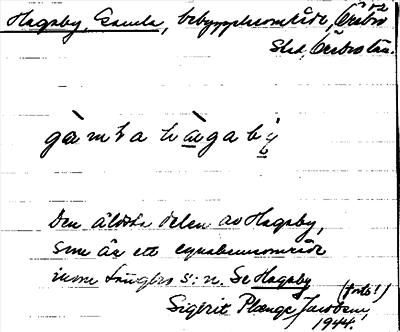 Hagaby, Gamla, bebyggelseområde, Örebro
Stad, Örebro län.
gàmla hàgaby
Den äldsta delen av Hagaby,
som är ett egnahemsområde
inom Längbro s:n. Se Hagaby
(forts!)
Sigerit Plænge Jacobson
1944.